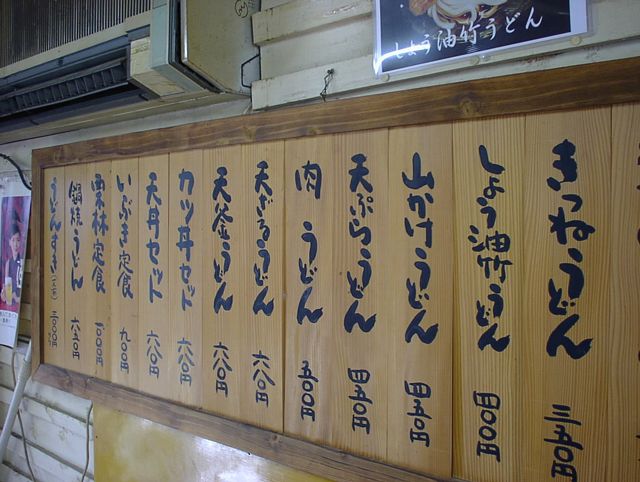 しょう油竹うどん
きつねうどん 三五〇円
しょう油竹うどん 四〇〇円
山かけうどん 四五〇円
天ぷらうどん 四五〇円
肉うどん 五〇〇円
天ざるうどん 六八〇円
天釜うどん 六八〇円
カツ丼セット 六八〇円
天丼セット 六八〇円
いぶき定食 九〇〇円
栗林定食 一〇〇〇円
鍋焼うどん 六五〇円
うどんすき